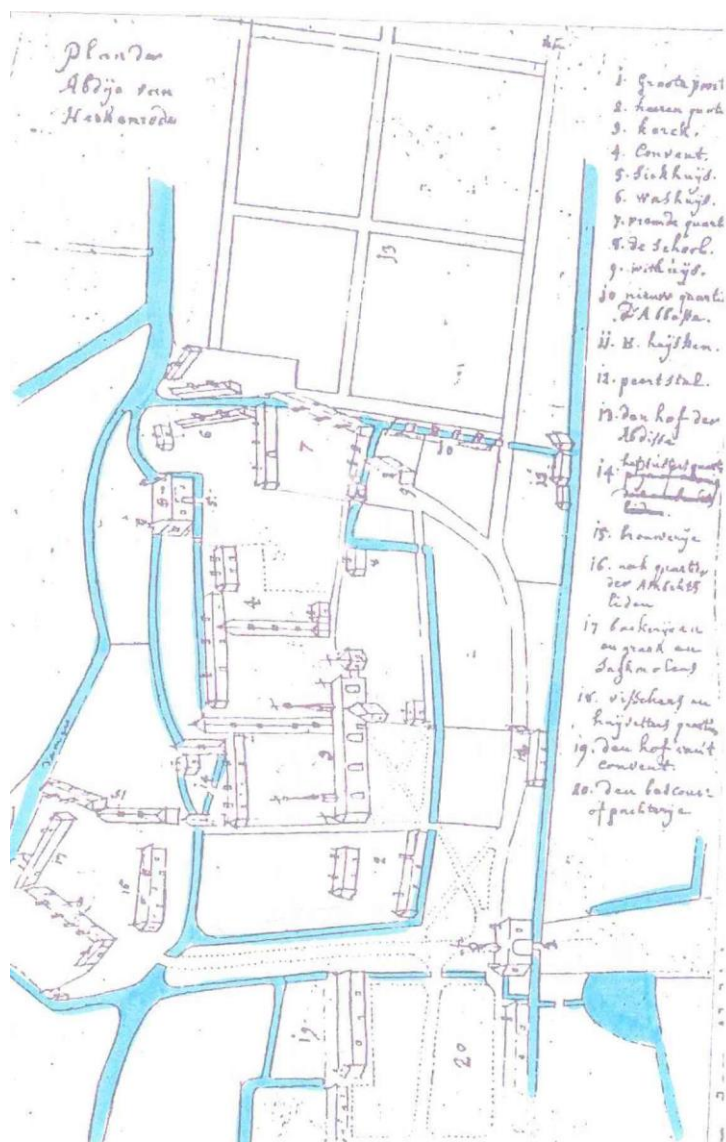 Plan der
Abdije van
Herkenrode
1. Groote poort
2. heeren quart
3. kerck.
4. Convent.
5. Sickhuijs.
6. washuijs.
7. vremde quart
8. de School.
9. withuijs.
10 nieuw quarti
d'Abbesse.
11. B. huijsken.
12. peertstal.
13. den hof der
Abdisse
14.
15. brouwerije
16. quartier
der Ambachts
lieden
17 backerije en
en
Saghmolens
18. visschers en
huijvetters quartier
19. den hof vant
convent.
20. den bascour
of pachterije
13
6
7
10
9
5
8
4
3
2
15
17
16
12
19
20